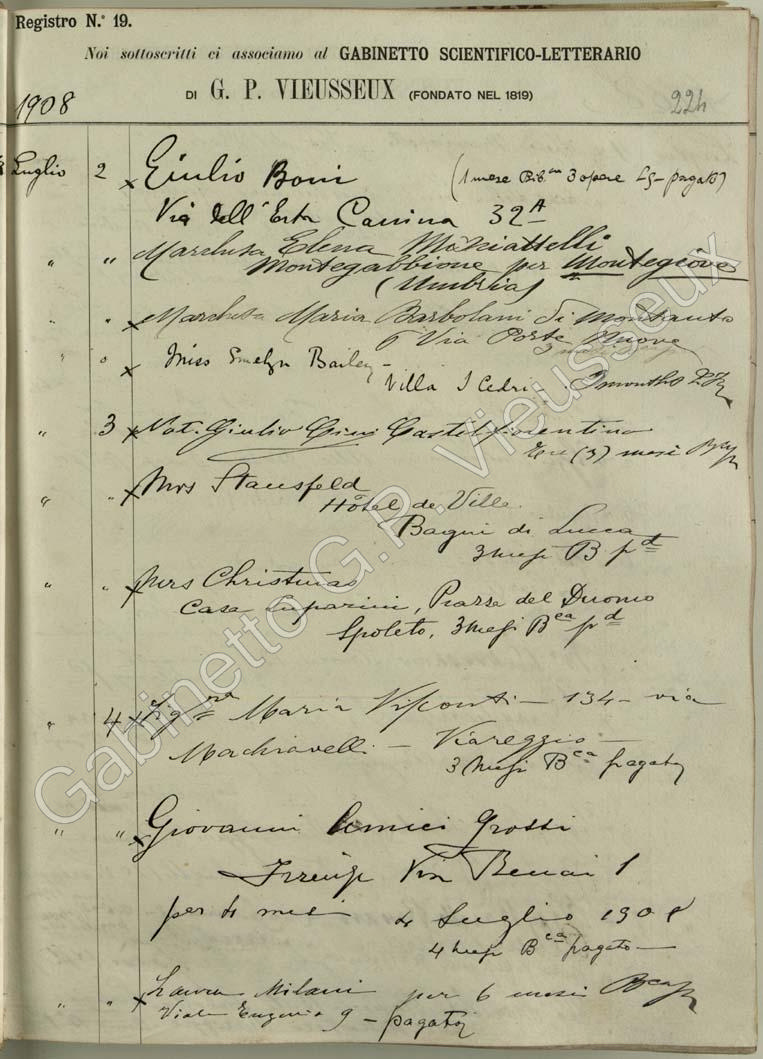 Registro N.º 19.
Noi sottoscritti ci associamo al GABINETTO SCIENTIFICO-LETTERARIO
DI G. P. VIEUSSEUX (FONDATO NEL 1819)
1908
224
Luglio 2 Giulio Boni (1 mese 3 opere pagato)
Via dell'Erta Canina 32A
" " Marchesa Elena
Montegabbione per Montegiove
(Umbria)
" " Marchesa Maria Barbolani di Montauto
6 Via Porte Nuove
" " Miss Emelyn Bailey
Villa I Cedri 3 months
" 3 Not. Giulio Castelfiorentino
(3) mesi
" " Mrs Stansfeld
Hôtel de Ville
Bagni di Lucca
3 mesi B. pd
" " Mrs Christmas
Casa Luparini, Piazza del Duomo
Spoleto, 3 mesi Bca pd
" 4 Maria Visconti - 134 - via
Machiavelli - Viareggio -
3 mesi Bca pagato
" " Giovanni Amici Grossi
Firenze Via Renai 1
per mesi 4 Luglio 1908
4 mesi Bca pagato
" " Laura Milani per 6 mesi
Viale Eugenia 9 - pagato
Gabinetto G.P. Vieusseux